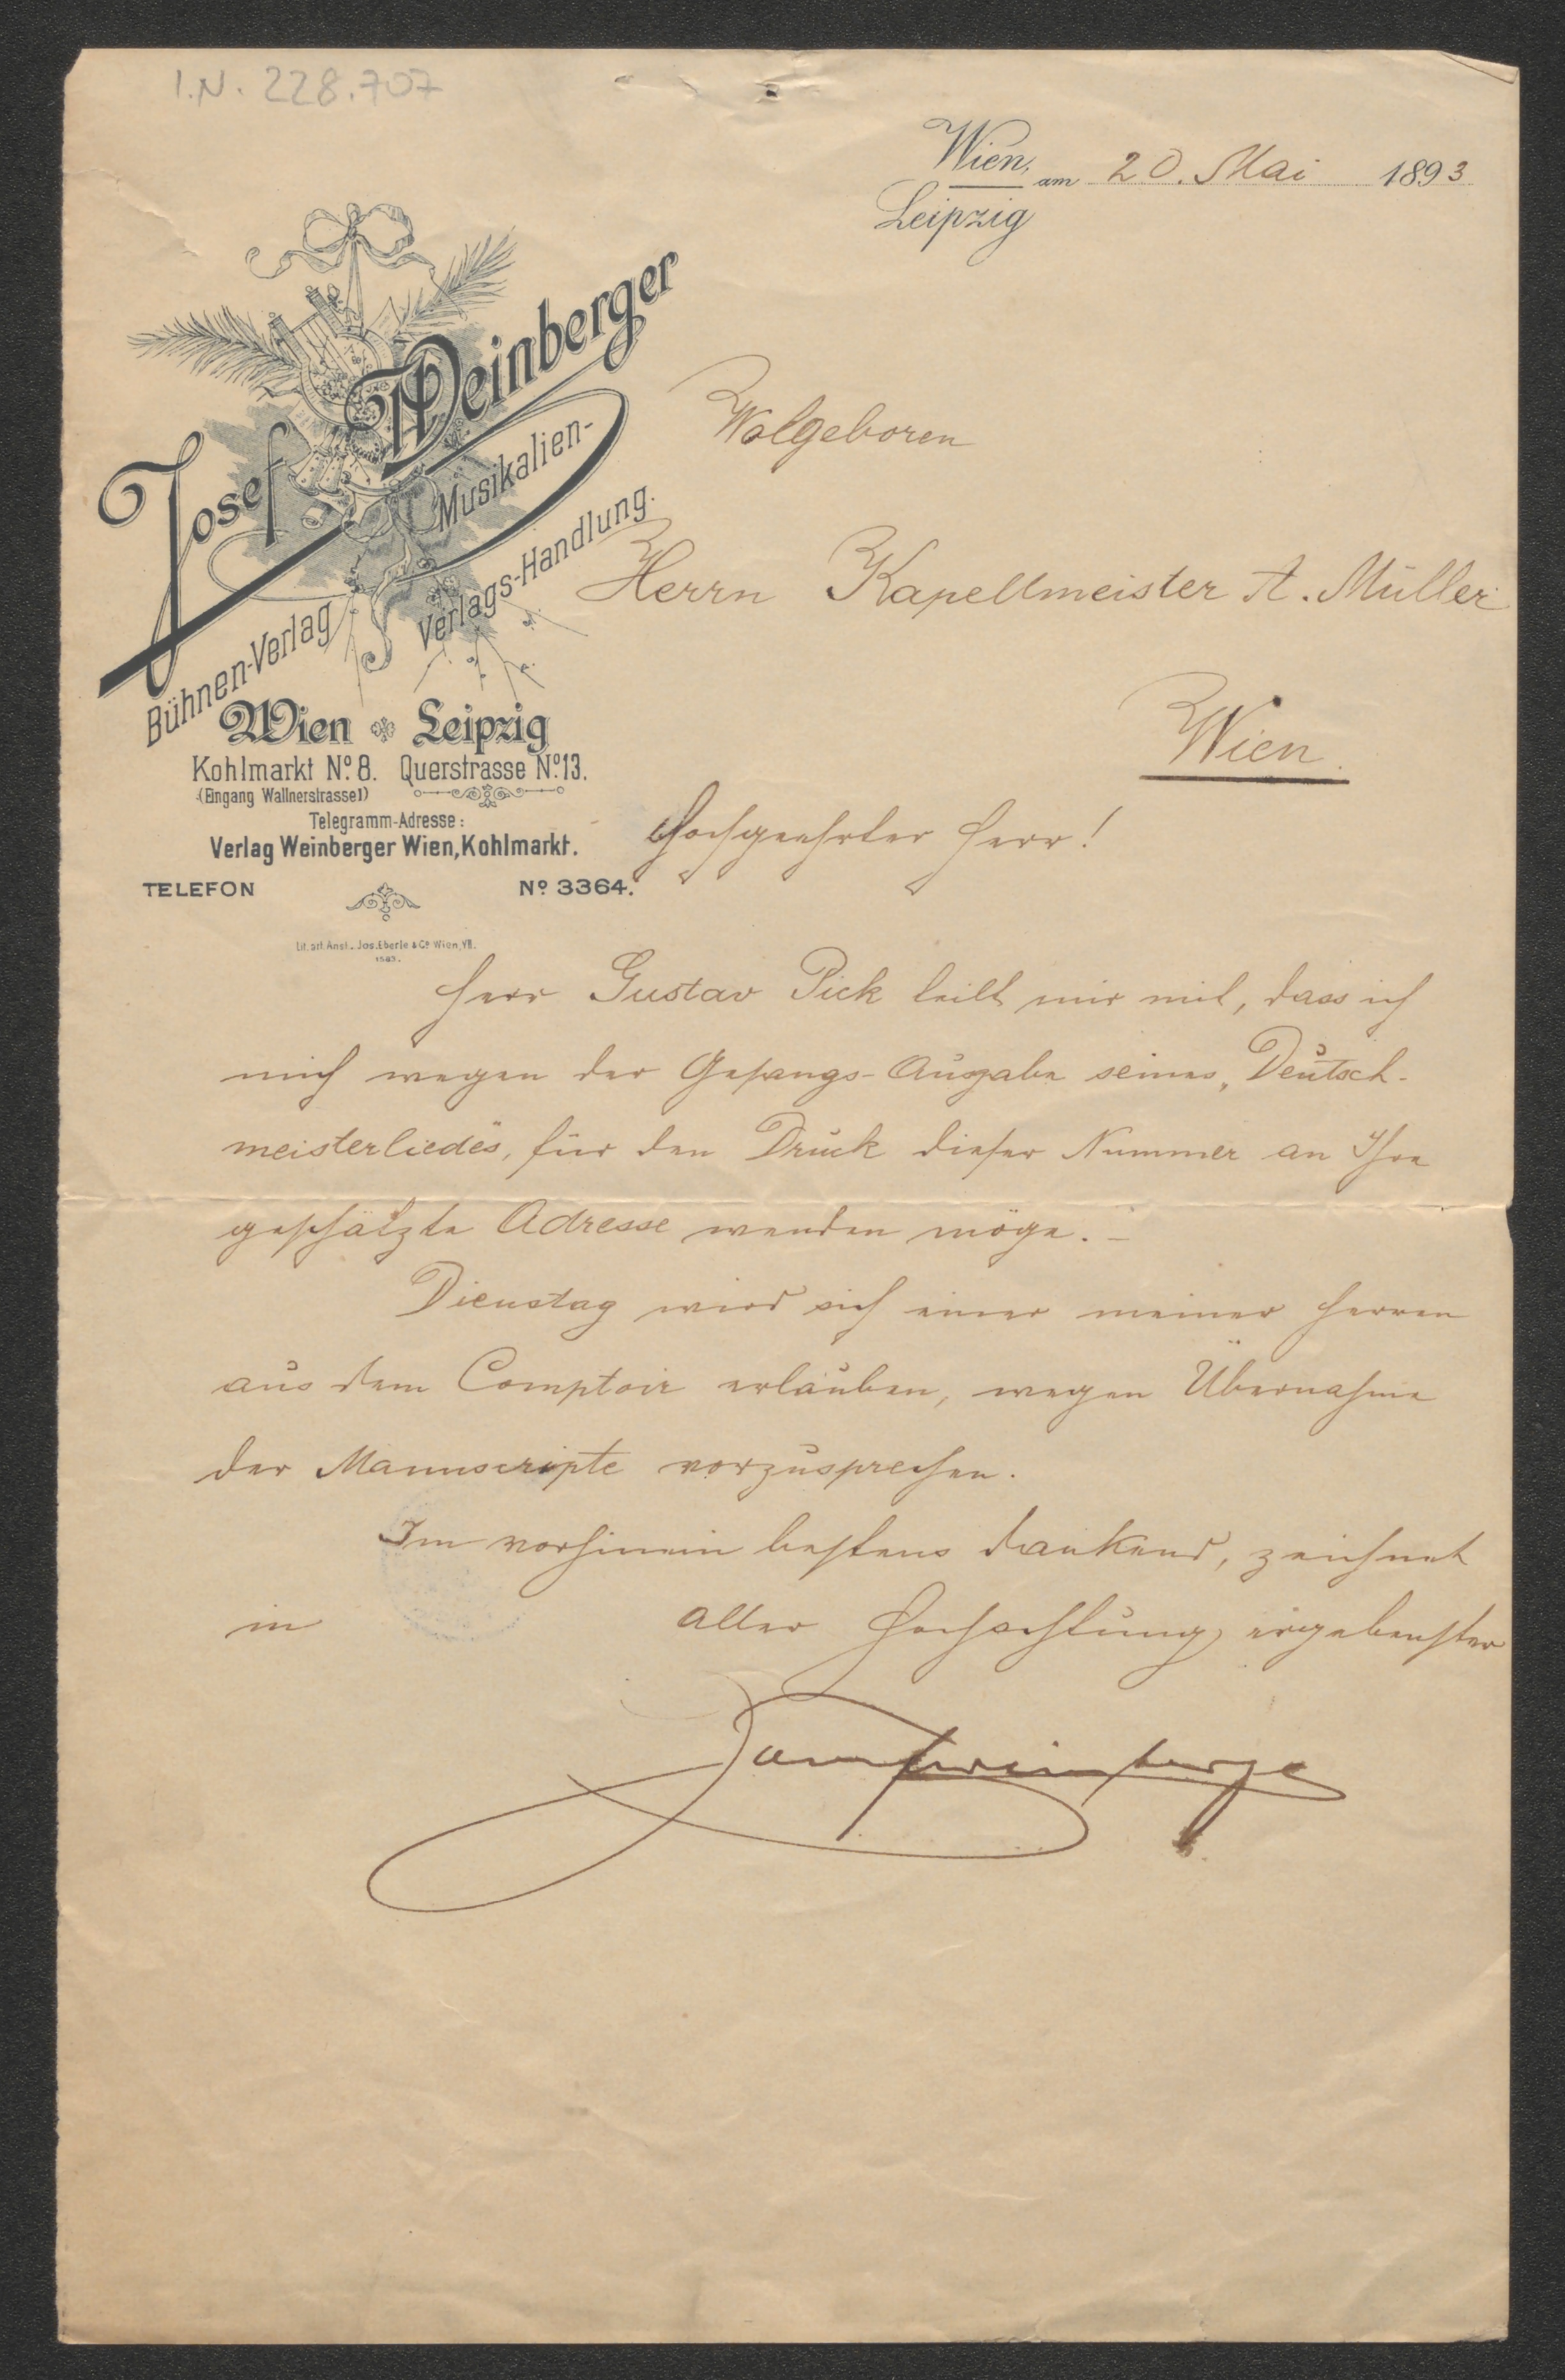 I.N. 228.707
Wien, am 20. Mai 1893
Leipzig
Josef Weinberger
Musikalien-
Verlags-Handlung.
Bühnen-Verlag
Wien Leipzig
Kohlmarkt No. 8. Querstrasse No. 13.
(Eingang Wallnerstrasse 1)
Telegramm-Adresse:
Verlag Weinberger Wien, Kohlmarkt.
TELEFON No. 3364.
Lit. art. Anst. Jos. Eberle & Co. Wien, VII.
Wolgeboren
Herrn Kapellmeister A. Müller
Wien.
Hochgeehrter Herr!
Herr Gustav Pick teilt mir mit, dass ich
mich wegen der Gesangs-Ausgabe seines „Deutsch-
meisterliedes“, für den Druck dieser Nummer an Ihre
geschätzte Adresse wenden möge. –
Dienstag wird sich einer meiner Herren
aus dem Comptoir erlauben, wegen Übernahme
der Manuscripte vorzusprechen.
Im vorhinein bestens dankend, zeichnet
in aller Hochachtung ergebenster
Josef Weinberger